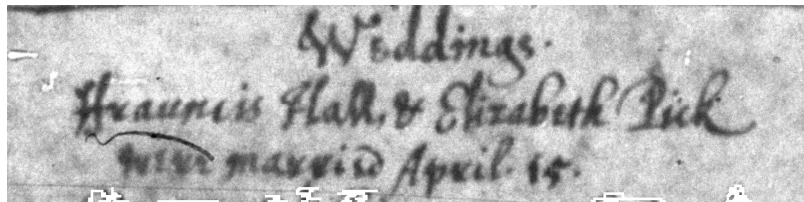 Weddings.
Frauncis Hall, & Elizabeth Pick
were married April. 15.